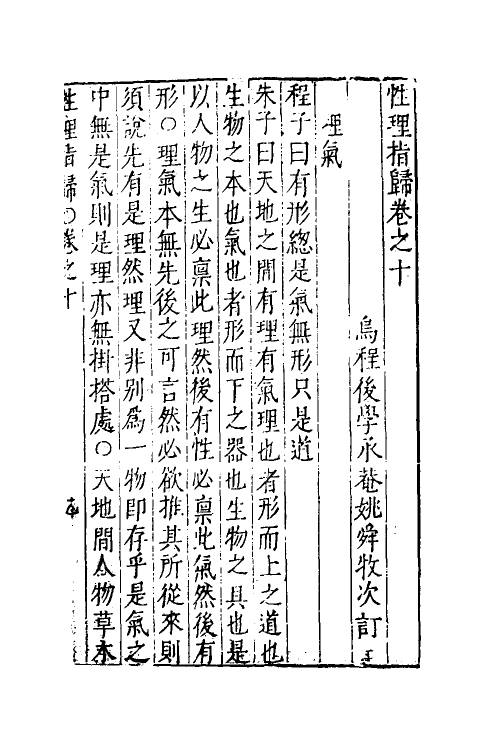 性理指歸卷之十
烏程後學承菴姚舜牧次訂
理氣
程子曰有形總是氣無形只是道
朱子曰天地之間有理有氣理也者形而上之道也
生物之本也氣也者形而下之器也生物之具也是
以人物之生必禀此理然後有性必禀此氣然後有
形○理氣本無先後之可言然必欲推其所從來則
須說先有是理然理又非别爲一物即存乎是氣之
中無是氣則是理亦無掛搭處○天地間人物草木
性理指歸○卷之十